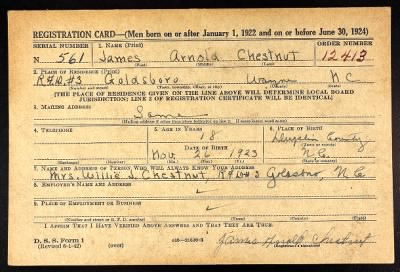 REGISTRATION CARD—(Men born on or after January 1, 1922 and on or before June 30, 1924)
SERIAL NUMBER 1. NAME (Print) ORDER NUMBER
N 561 James Arnold Chestnut 12413
(First) (Middle) (Last)
2. PLACE OF RESIDENCE (Print)
R.F.D. #3 Goldsboro Wayne N C
(Number and street) (Town, township, village, or city) (County) (State)
[THE PLACE OF RESIDENCE GIVEN ON THE LINE ABOVE WILL DETERMINE LOCAL BOARD
JURISDICTION; LINE 2 OF REGISTRATION CERTIFICATE WILL BE IDENTICAL]
3. MAILING ADDRESS
Same
[Mailing address if other than place indicated on line 2. If same insert word same]
4. TELEPHONE 5. AGE IN YEARS 6. PLACE OF BIRTH
18 Duplin County
DATE OF BIRTH
Nov. 26 1923 N.C.
7. NAME AND ADDRESS OF PERSON WHO WILL ALWAYS KNOW YOUR ADDRESS
Mrs. Willie J. Chestnut, RFD#3 Goldsboro, N C
8. EMPLOYER'S NAME AND ADDRESS
9. PLACE OF EMPLOYMENT OR BUSINESS
(Number and street or R. F. D. number) (Town) (County) (State)
I AFFIRM THAT I HAVE VERIFIED ABOVE ANSWERS AND THAT THEY ARE TRUE.
D. S. S. Form 1
(Revised 6-1-42)
James Arnold Chestnut